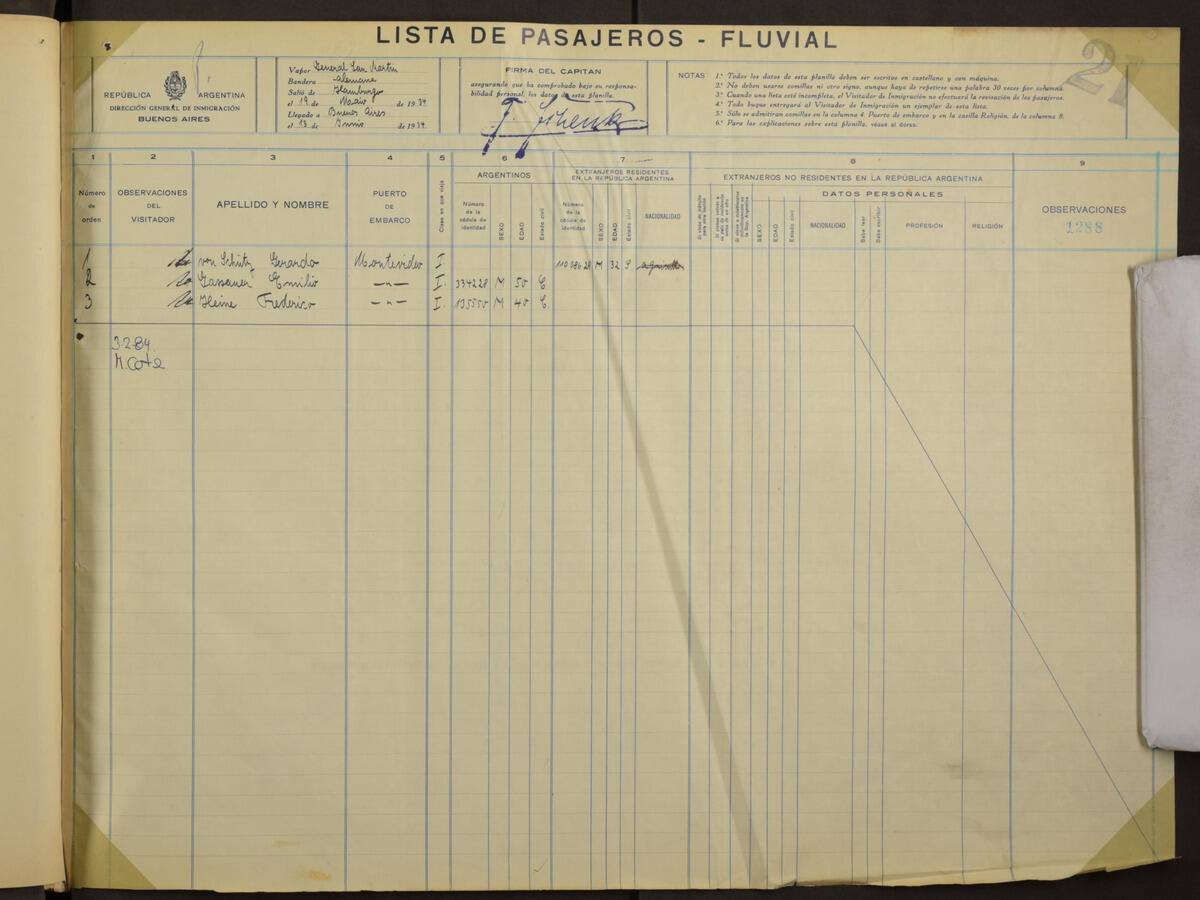 LISTA DE PASAJEROS - FLUVIAL
21
REPÚBLICA ARGENTINA
DIRECCIÓN GENERAL DE INMIGRACIÓN
BUENOS AIRES
Vapor General San Martin
Bandera alemana
Salió de Hamburgo
el 19 de Maio de 1934
Llegado a Buenos Aires
el 13 de Junio de 1934
FIRMA DEL CAPITAN
asegurando que ha comprobado bajo su responsabilidad personal, los datos de esta planilla.
NOTAS
1.ª Todos los datos de esta planilla deben ser escritos en castellano y con máquina.
2.ª No deben usarse comillas ni otro signo, aunque haya de repetirse una palabra 30 veces por columna.
3.ª Cuando una lista esté incompleta, el Visitador de Inmigración no efectuará la revisación de los pasajeros.
4.ª Todo buque entregará al Visitador de Inmigración un ejemplar de esta lista.
5.ª Sólo se admitiran comillas en la columna 4. Puerto de embarco y en la casilla Religión, de la columna 8.
6.ª Para las explicaciones sobre esta planilla, véase al dorso.
1 2 3 4 5 6 7 8 9
Número de orden
OBSERVACIONES DEL VISITADOR
APELLIDO Y NOMBRE
PUERTO DE EMBARCO
Clase en que viaja
ARGENTINOS
Número de la cédula de identidad
SEXO
EDAD
Estado civil
EXTRANJEROS RESIDENTES EN LA REPÚBLICA ARGENTINA
Número de la cédula de identidad
SEXO
EDAD
Estado civil
NACIONALIDAD
EXTRANJEROS NO RESIDENTES EN LA REPÚBLICA ARGENTINA
DATOS PERSONALES
SEXO
EDAD
Estado civil
NACIONALIDAD
Sabe leer
Sabe escribir
PROFESIÓN
RELIGIÓN
OBSERVACIONES
1288
1 von Schütz Gerardo Montevideo I. M 32 S
2 Emilio -"- I. 334228 M 50 C
3 Heine Frederico -"- I. 135550 M 40 C.
3-2-84